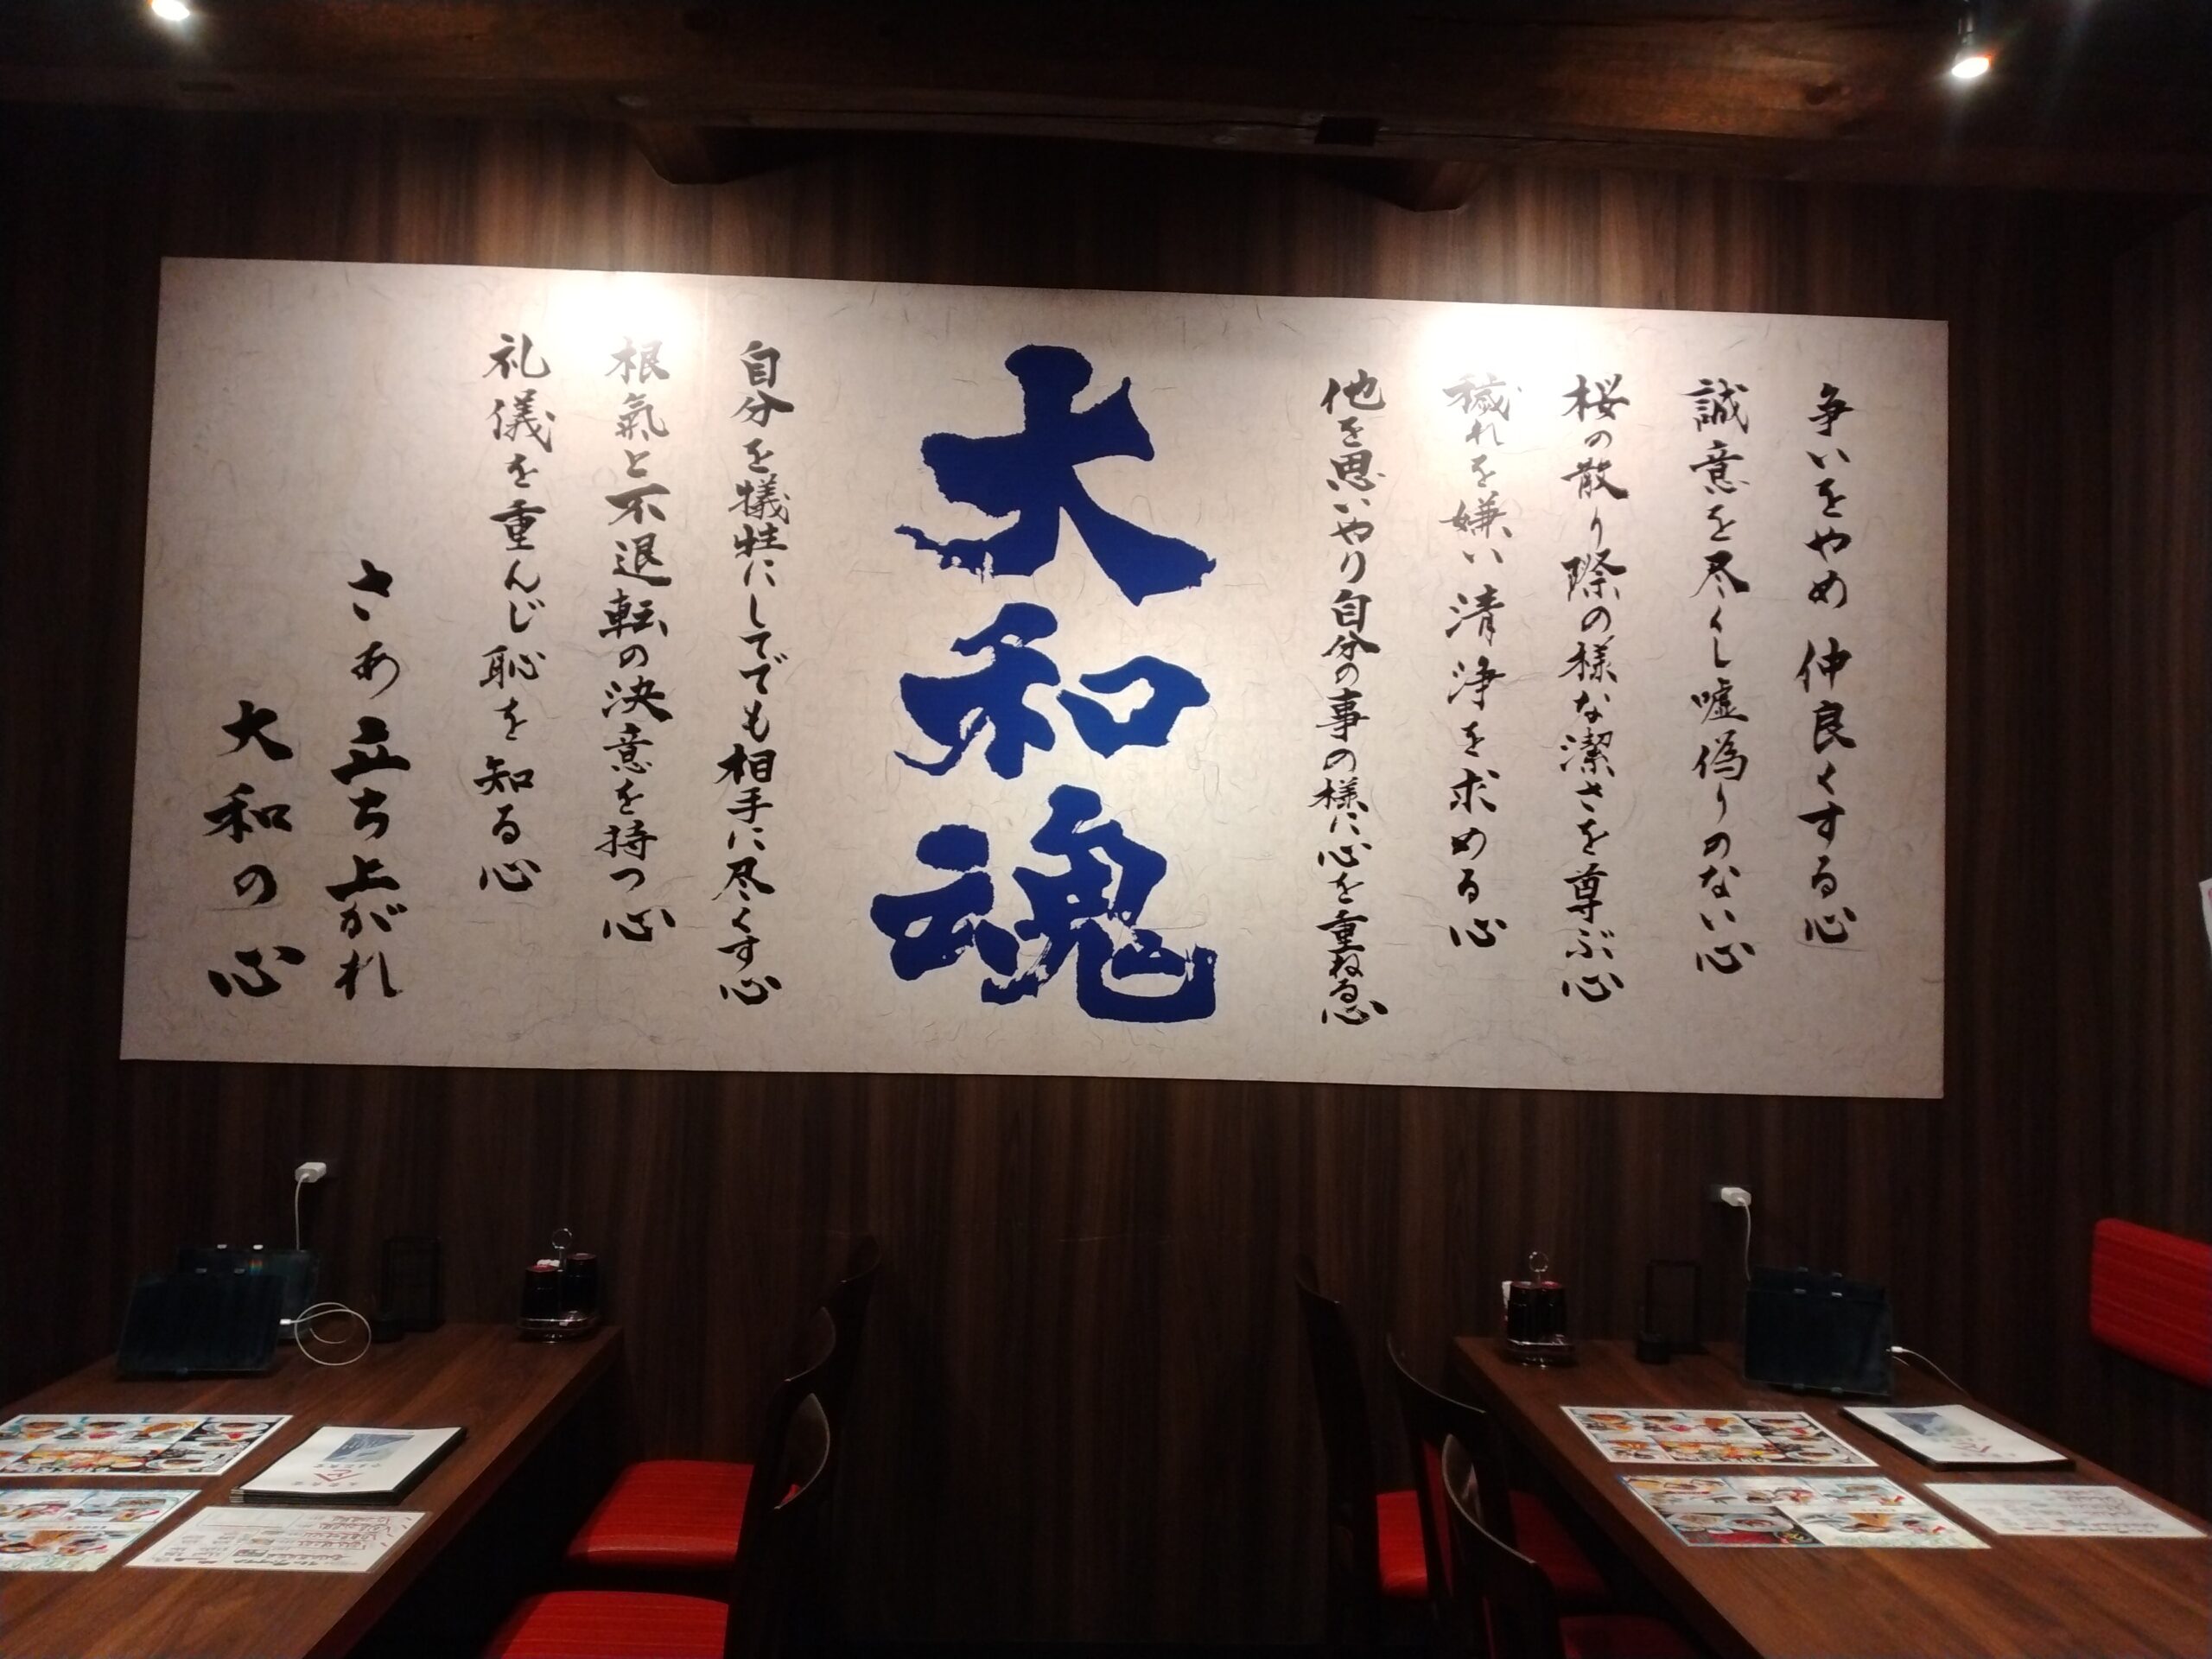 争いをやめ 仲良くする心
誠意を尽くし嘘偽りのない心
桜の散り際の様な潔さを尊ぶ心
穢れを嫌い清浄を求める心
他を思いやり自分の事の様に心を重ねる心
大和魂
自分を犠牲にしてでも相手に尽くす心
根氣と不退転の決意を持つ心
礼儀を重んじ恥を知る心
さあ立ち上がれ
大和の心